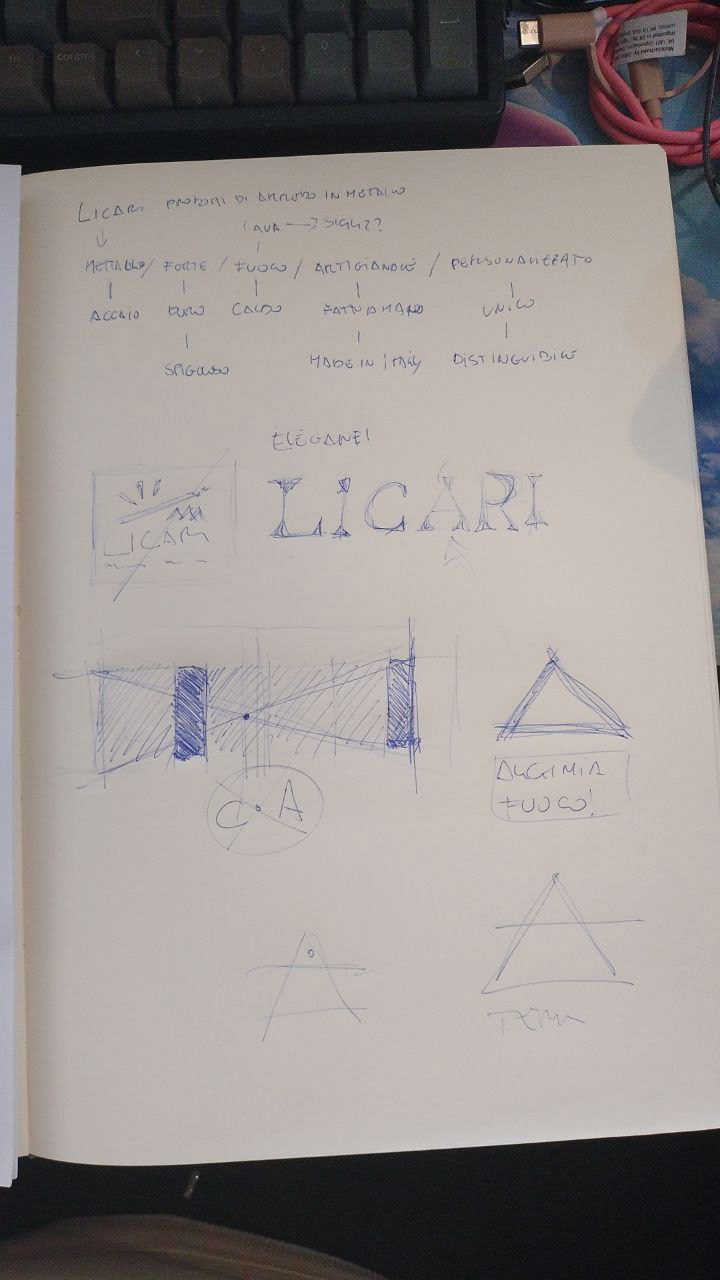 LICARI PRODOTTI DI ARREDO IN METALLO
METALLO / FORTE / FUOCO / ARTIGIANALE / PERSONALIZZATO
ACCAIO DURO CALDO FATTO A MANO UNICO
SPIGOLOSO MADE IN ITALY DISTINGUIBILE
ELEGANE!
LICARI
LICARI
C A
ALCHIMIA
FUOCO!
fn control